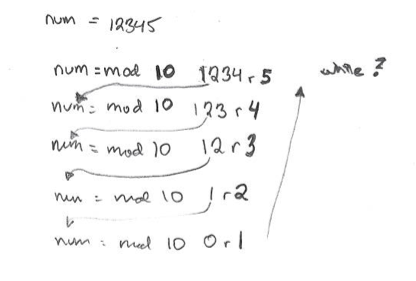 num = 12345
num = mod 10 1234 r 5 while?
num = mod 10 123 r 4
num = mod 10 12 r 3
num = mod 10 1 r 2
num = mod 10 0 r 1